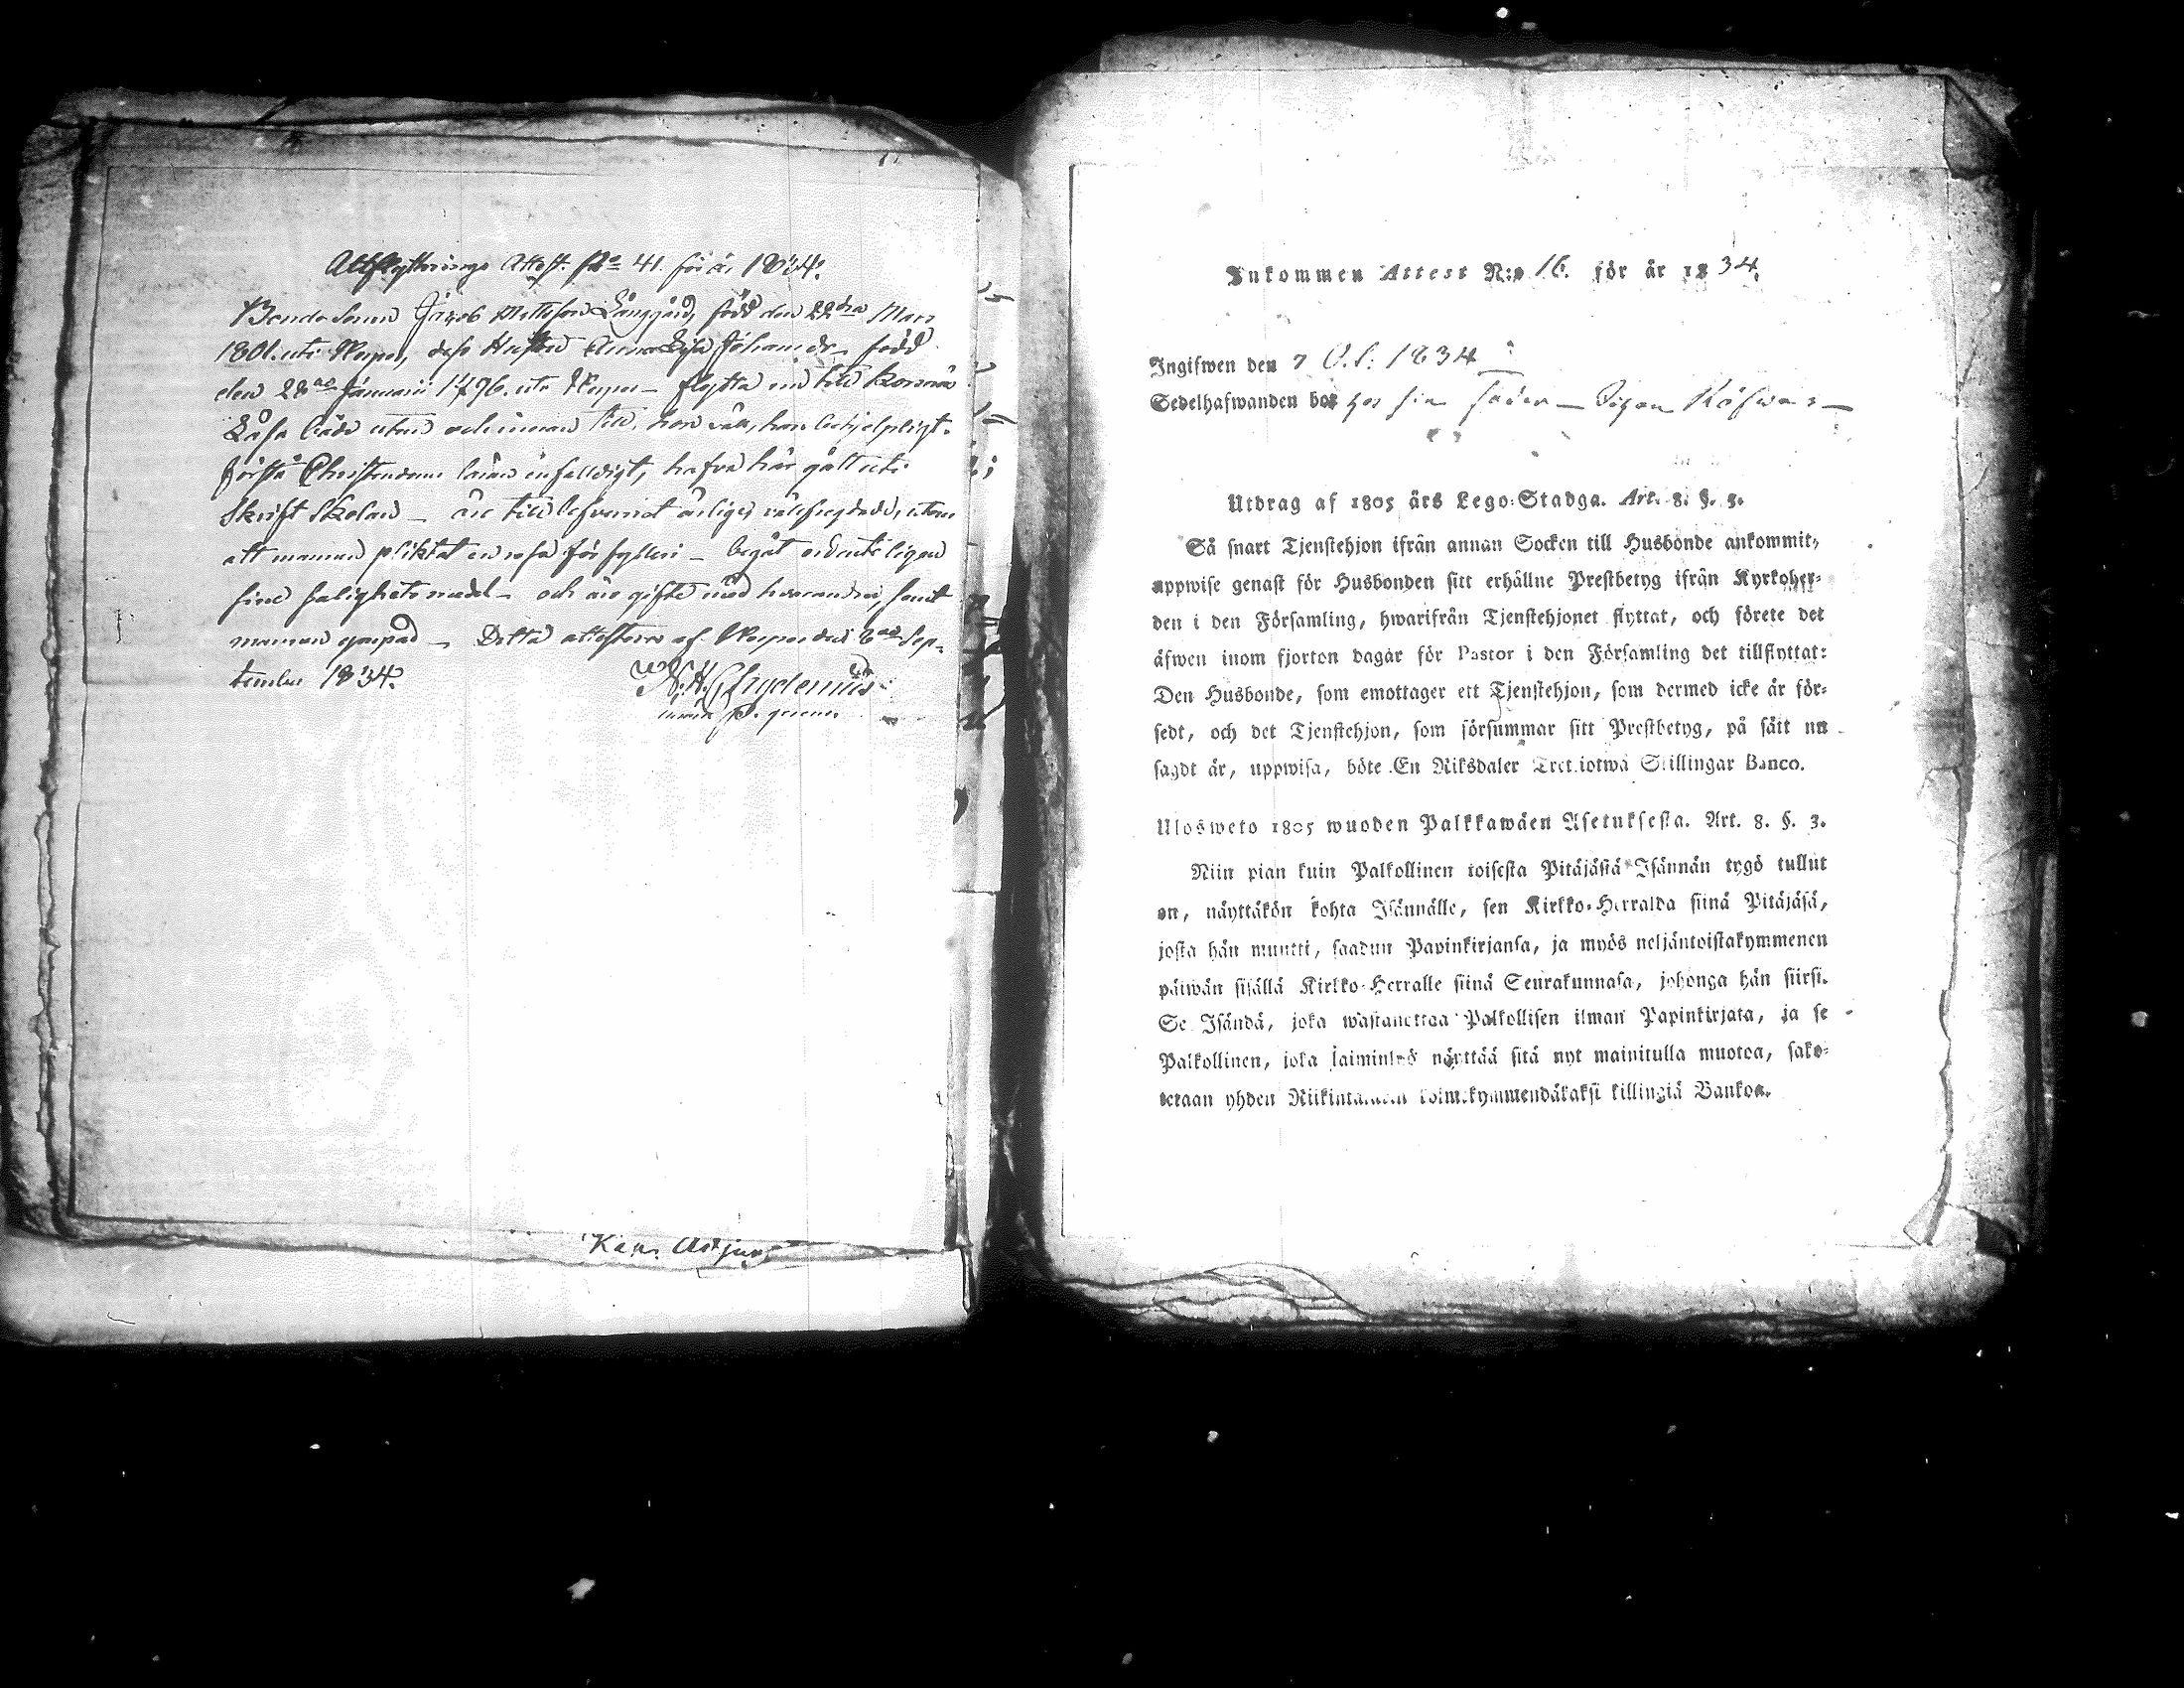 Utflyttnings Attest. No 41. för år 1834.
Bonde Sonen Jacob Mattsson Långgård, född den 22dra Mars
1801. uti Nerpes, dess Hustru Anna Lisa Johansdr. född
den 28de Januarii 1796. uti Nerpes — flytta nu till Korsnäs
Läsa både utan och innan till, hon väl, han behjelpligt.
förstå Christendoms läran enfaldigt, hafva här gått uti
Skrift Skolan — äro till lefvernet ärlige, välfrejdade, utom
att mannen pliktat en resa för fylleri — begåt ordenteligen
sine salighets medel — och äro gifte med hvarandra, samt
mannen — Detta attesteras af Nerpes den 6te Sep-
tember 1834.
N. H. Chydenius
Kans Adjung
Inkommen Attest N:o 16. för år 1834.
Ingifwen den 7 1834
Sedelhafwanden bor hos sin
Utdrag af 1805 års Lego-Stadga. Art. 8. §. 3.
Så snart Tjenstehjon ifrån annan Socken till Husbonde ankommit,
uppwise genast för Husbonden sitt erhållne Prestbetyg ifrån Kyrkoher-
den i den Församling, hwarifrån Tjenstehjonet flyttat, och förete det
äfwen inom fjorton dagar för Pastor i den Församling det tillflyttat:
Den Husbonde, som emottager ett Tjenstehjon, som dermed icke är för-
sedt, och det Tjenstehjon, som försummar sitt Prestbetyg, på sätt nu
sagdt är, uppwisa, böte En Riksdaler Trettiotwå Skillingar Banco.
Ulosweto 1805 wuoden Palkkawäen Asetuksesta. Art. 8. §. 3.
Niin pian kuin Palkollinen toisesta Pitäjästä Isännän tygö tullut
on, näyttäkön kohta Isännälle, sen Kirkko-Herralda siinä Pitäjäsä,
josta hän muutti, saadun Papinkirjansa, ja myös neljäntoistakymmenen
päiwän sisällä Kirkko-Herralle siinä Seurakunnasa, johonga hän siirsi.
Se Isändä, joka wastanottaa Palkollisen ilman Papinkirjata, ja se
Palkollinen, joka laiminlyö näyttää sitä nyt mainitulla muotoa, sako-
tetaan yhden Riikintalarin kolmekymmendäkaksi killingiä Bankoa.